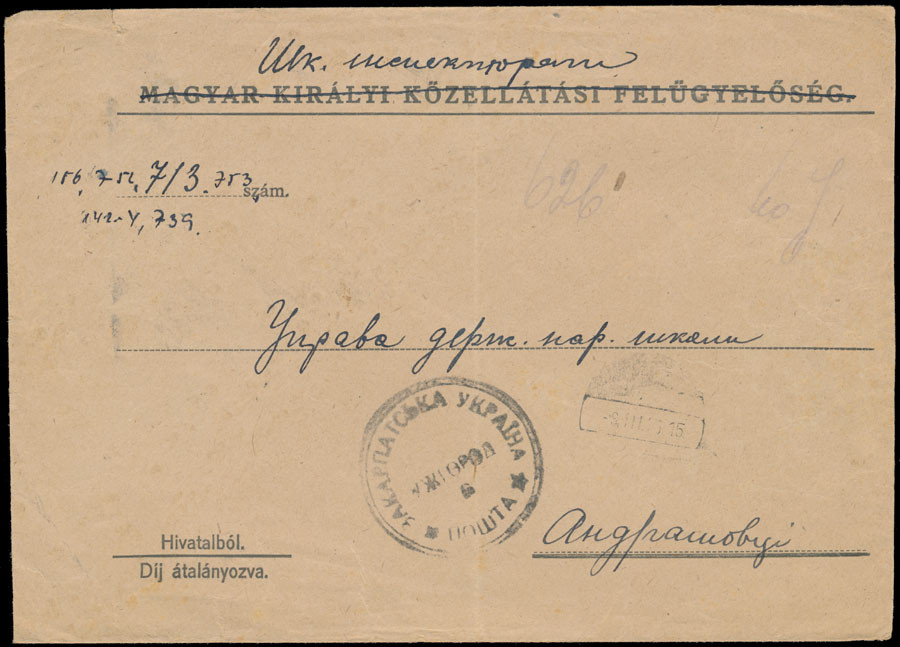 Шк. инспекторат
MAGYAR KIRÁLYI KÖZELLÁTÁSI FELÜGYELŐSÉG.
156, 751, 713. 753 szám.
741-4, 739.
626
Управа держ. нар. школи
ЗАКАРПАТСЬКА УКРАЇНА
УЖГОРОД
ПОШТА
Андрашовці
Hivatalból.
Díj átalányozva.